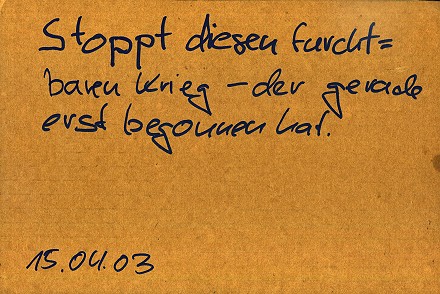 Stoppt diesen furcht=
baren Krieg – der gerade
erst begonnen hat.
15.04.03